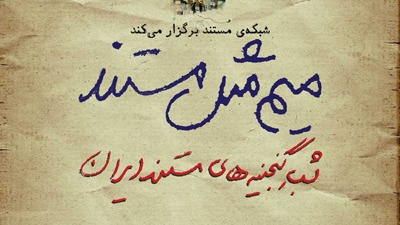 شبکه‌ی مُستند برگزار می‌کند
میم مثل مستند
شبِ گنجینه‌های مستند ایران